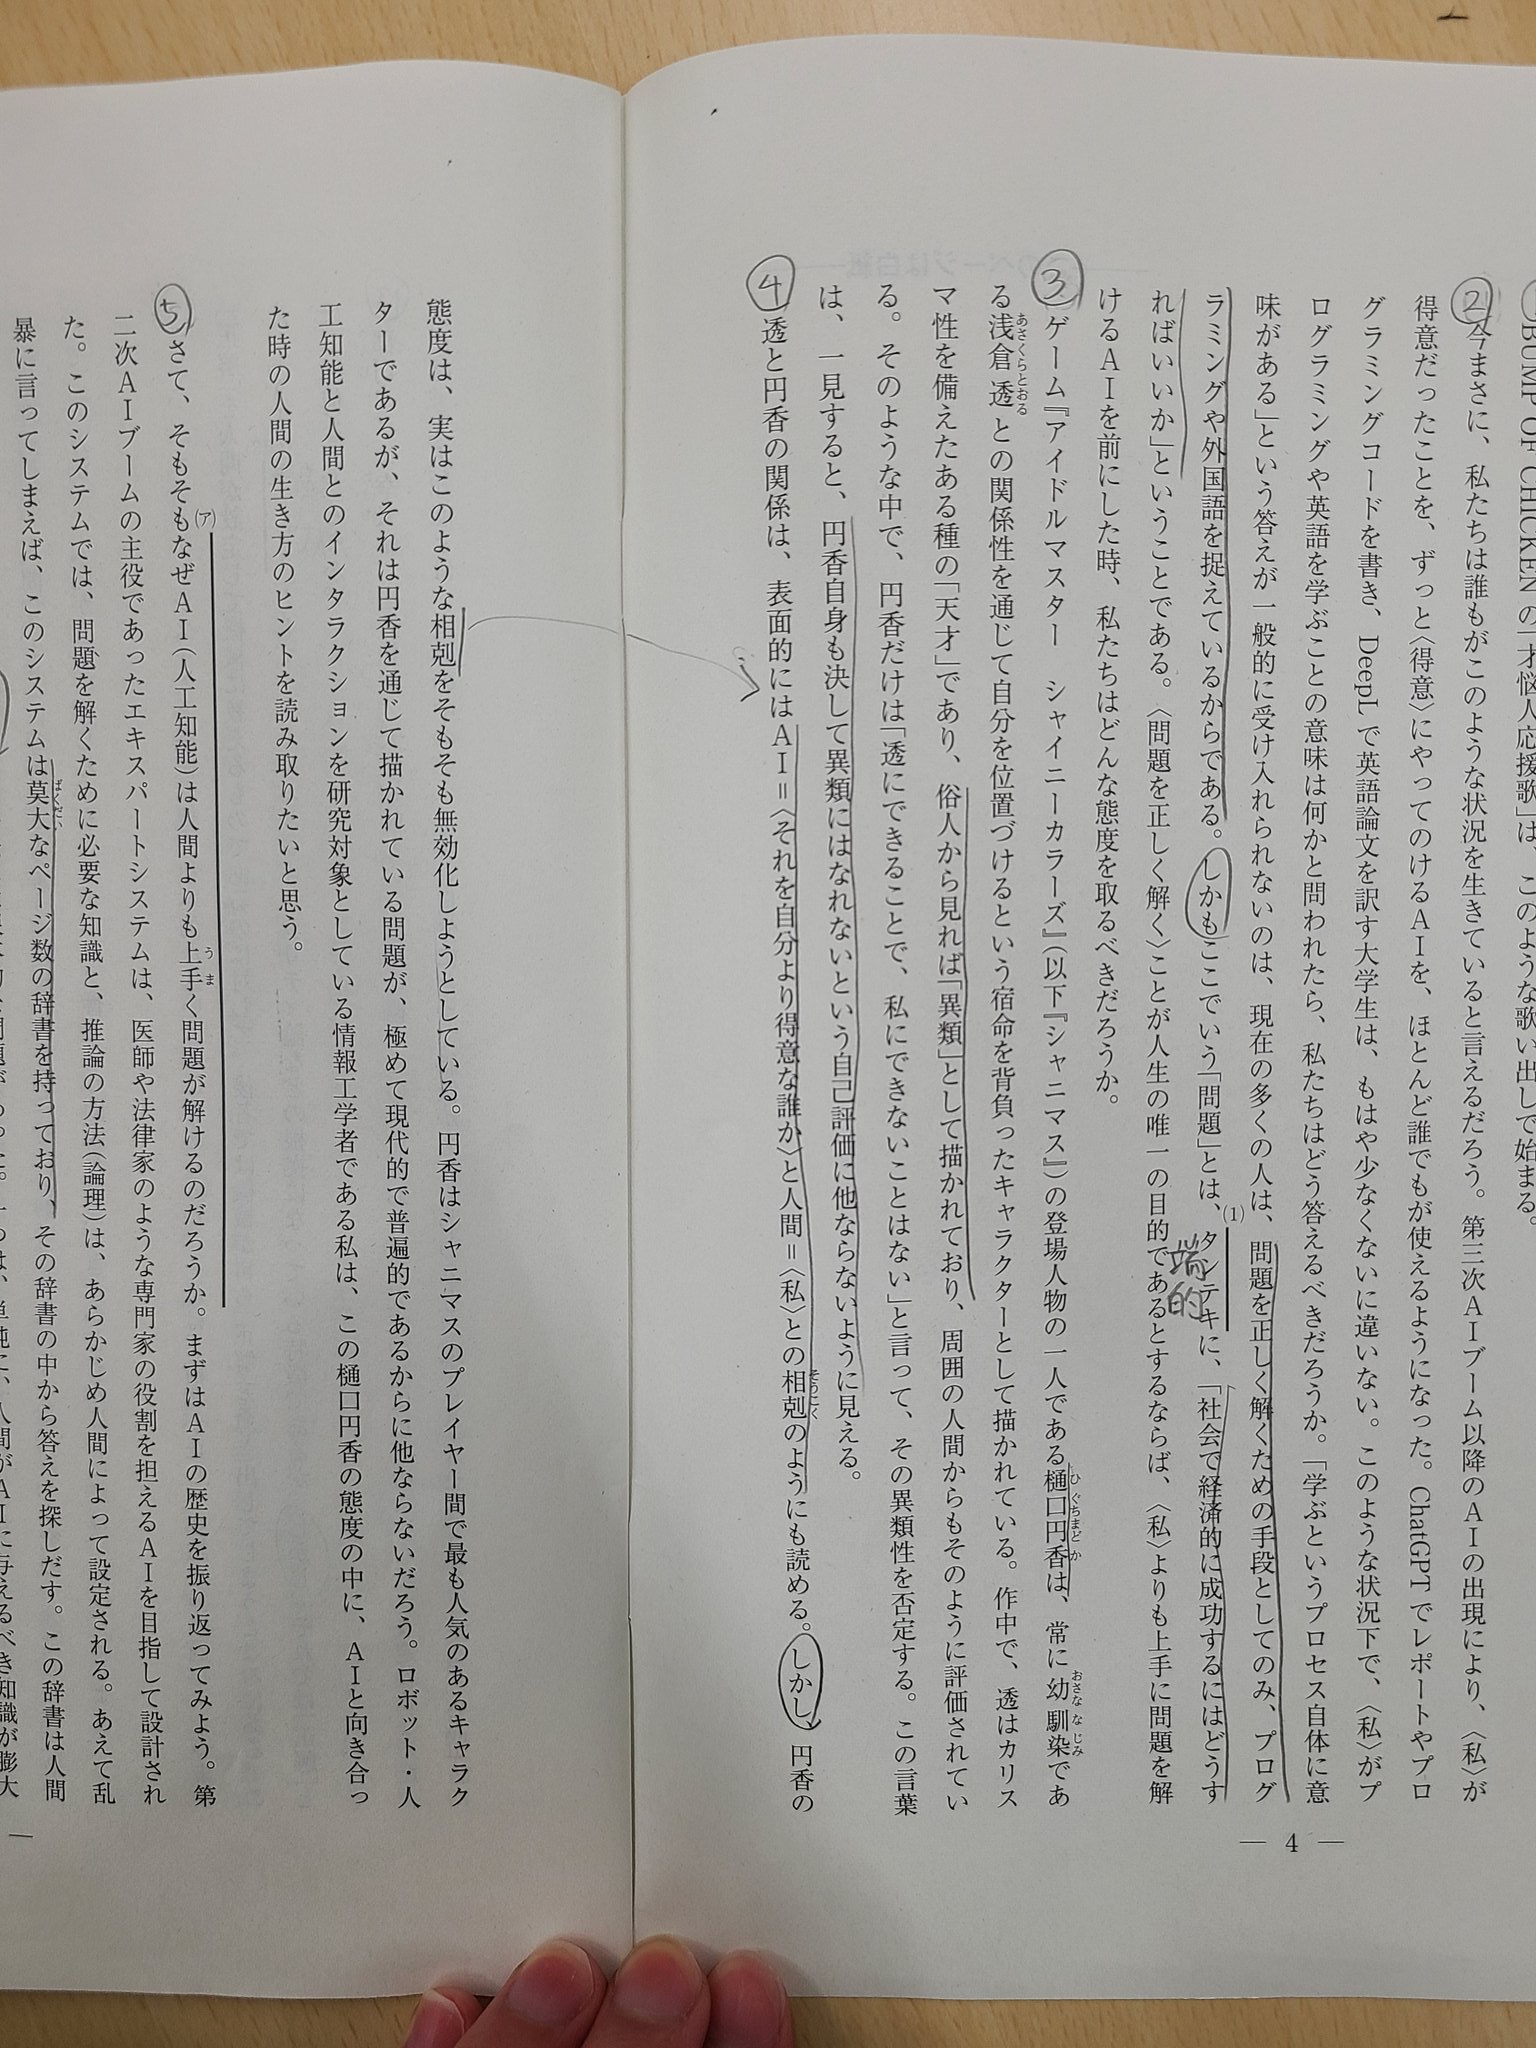 BUMP OF CHICKENの「才悩人応援歌」は、このような歌い出しで始まる。
②今まさに、私たちは誰もがこのような状況を生きていると言えるだろう。第三次AIブーム以降のAIの出現により、〈私〉が
得意だったことを、ずっと〈得意〉にやってのけるAIを、ほとんど誰でもが使えるようになった。ChatGPTでレポートやプロ
グラミングコードを書き、DeepLで英語論文を訳す大学生は、もはや少なくないに違いない。このような状況下で、〈私〉がプ
ログラミングや英語を学ぶことの意味は何かと問われたら、私たちはどう答えるべきだろうか。「学ぶというプロセス自体に意
味がある」という答えが一般的に受け入れられないのは、現在の多くの人は、問題を正しく解くための手段としてのみ、プログ
ラミングや外国語を捉えているからである。しかもここでいう「問題」とは、(1)タンテキに、「社会で経済的に成功するにはどうす
端的
ればいいか」ということである。〈問題を正しく解く〉ことが人生の唯一の目的であるとするならば、〈私〉よりも上手に問題を解
けるAIを前にした時、私たちはどんな態度を取るべきだろうか。
③ゲーム『アイドルマスター シャイニーカラーズ』(以下『シャニマス』)の登場人物の一人である樋口円香(ひぐちまどか)は、常に幼馴染(おさななじみ)であ
る浅倉透(あさくらとおる)との関係性を通じて自分を位置づけるという宿命を背負ったキャラクターとして描かれている。作中で、透はカリス
マ性を備えたある種の「天才」であり、俗人から見れば「異類」として描かれており、周囲の人間からもそのように評価されてい
る。そのような中で、円香だけは「透にできることで、私にできないことはない」と言って、その異類性を否定する。この言葉
は、一見すると、円香自身も決して異類にはなれないという自己評価に他ならないように見える。
④透と円香の関係は、表面的にはAI＝〈それを自分より得意な誰か〉と人間＝〈私〉との相剋(そうこく)のようにも読める。しかし、円香の
態度は、実はこのような相剋をそもそも無効化しようとしている。円香はシャニマスのプレイヤー間で最も人気のあるキャラク
ターであるが、それは円香を通じて描かれている問題が、極めて現代的で普遍的であるからに他ならないだろう。ロボット・人
工知能と人間とのインタラクションを研究対象としている情報工学者である私は、この樋口円香の態度の中に、AIと向き合っ
た時の人間の生き方のヒントを読み取りたいと思う。
⑤さて、そもそも(ア)なぜAI(人工知能)は人間よりも上手(うま)く問題が解けるのだろうか。まずはAIの歴史を振り返ってみよう。第
二次AIブームの主役であったエキスパートシステムは、医師や法律家のような専門家の役割を担えるAIを目指して設計され
た。このシステムでは、問題を解くために必要な知識と、推論の方法(論理)は、あらかじめ人間によって設定される。あえて乱
暴に言ってしまえば、このシステムは莫大(ばくだい)なページ数の辞書を持っており、その辞書の中から答えを探しだす。この辞書は人間
問題があった。一つは、単純に、人間がAIに与えるべき知識が膨大
— 4 —